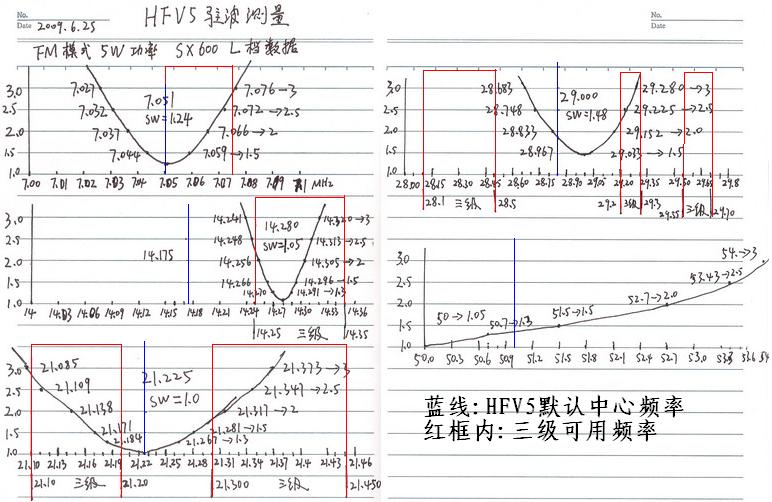 No.
Date 2009.6.25
HFV5 驻波测量
FM模式 5W功率 SX600 L档数据
3.0
2.5
2.0
1.5
1.0
7.027
7.032
7.037
7.044
7.051
SW=1.24
7.076→3
7.072→2.5
7.066→2
7.059→1.5
7.00 7.01 7.02 7.03 7.04 7.05 7.06 7.07 7.08 7.09 7.1 MHz
3.0
2.5
2.0
1.5
1.0
14.175
14.241
14.248
14.256
14.266
14.270
14.280
SW=1.05
14.320→3
14.313→2.5
14.305→2
14.296→1.5
14.291→1.3
14 14.03 14.06 14.09 14.12 14.15 14.18 14.21 14.24 14.27 14.30 14.33 14.36
14.25 三级 14.35
3.0
2.5
2.0
1.5
1.0
21.085
21.109
21.138
21.171
21.184
21.225
SW=1.0
21.373→3
21.347→2.5
21.317→2
21.281→1.5
21.267→1.3
21.10 21.13 21.16 21.19 21.22 21.25 21.28 21.31 21.34 21.37 21.40 21.43 21.46
21.10 三级 21.20 21.300 三级 21.450
No.
Date
3.0
2.5
2.0
1.5
1.0
28.683
28.748
28.833
28.967
29.000
SW=1.48
29.280→3
29.225→2.5
29.152→2.0
29.033→1.5
28.00 28.15 28.30 28.45 28.60 28.75 28.90 29.05 29.20 29.35 29.50 29.65 29.8
28.1 三级 28.5 29.2 三级 29.3 29.55 三级 29.70
3.0
2.5
2.0
1.5
1.0
50→1.05
50.7→1.3
51.5→1.5
52.7→2.0
53.43→2.5
54.→3
50.0 50.3 50.6 50.9 51.2 51.5 51.8 52.1 52.4 52.7 53.0 53.3 53.6 54
蓝线:HFV5默认中心频率
红框内:三级可用频率